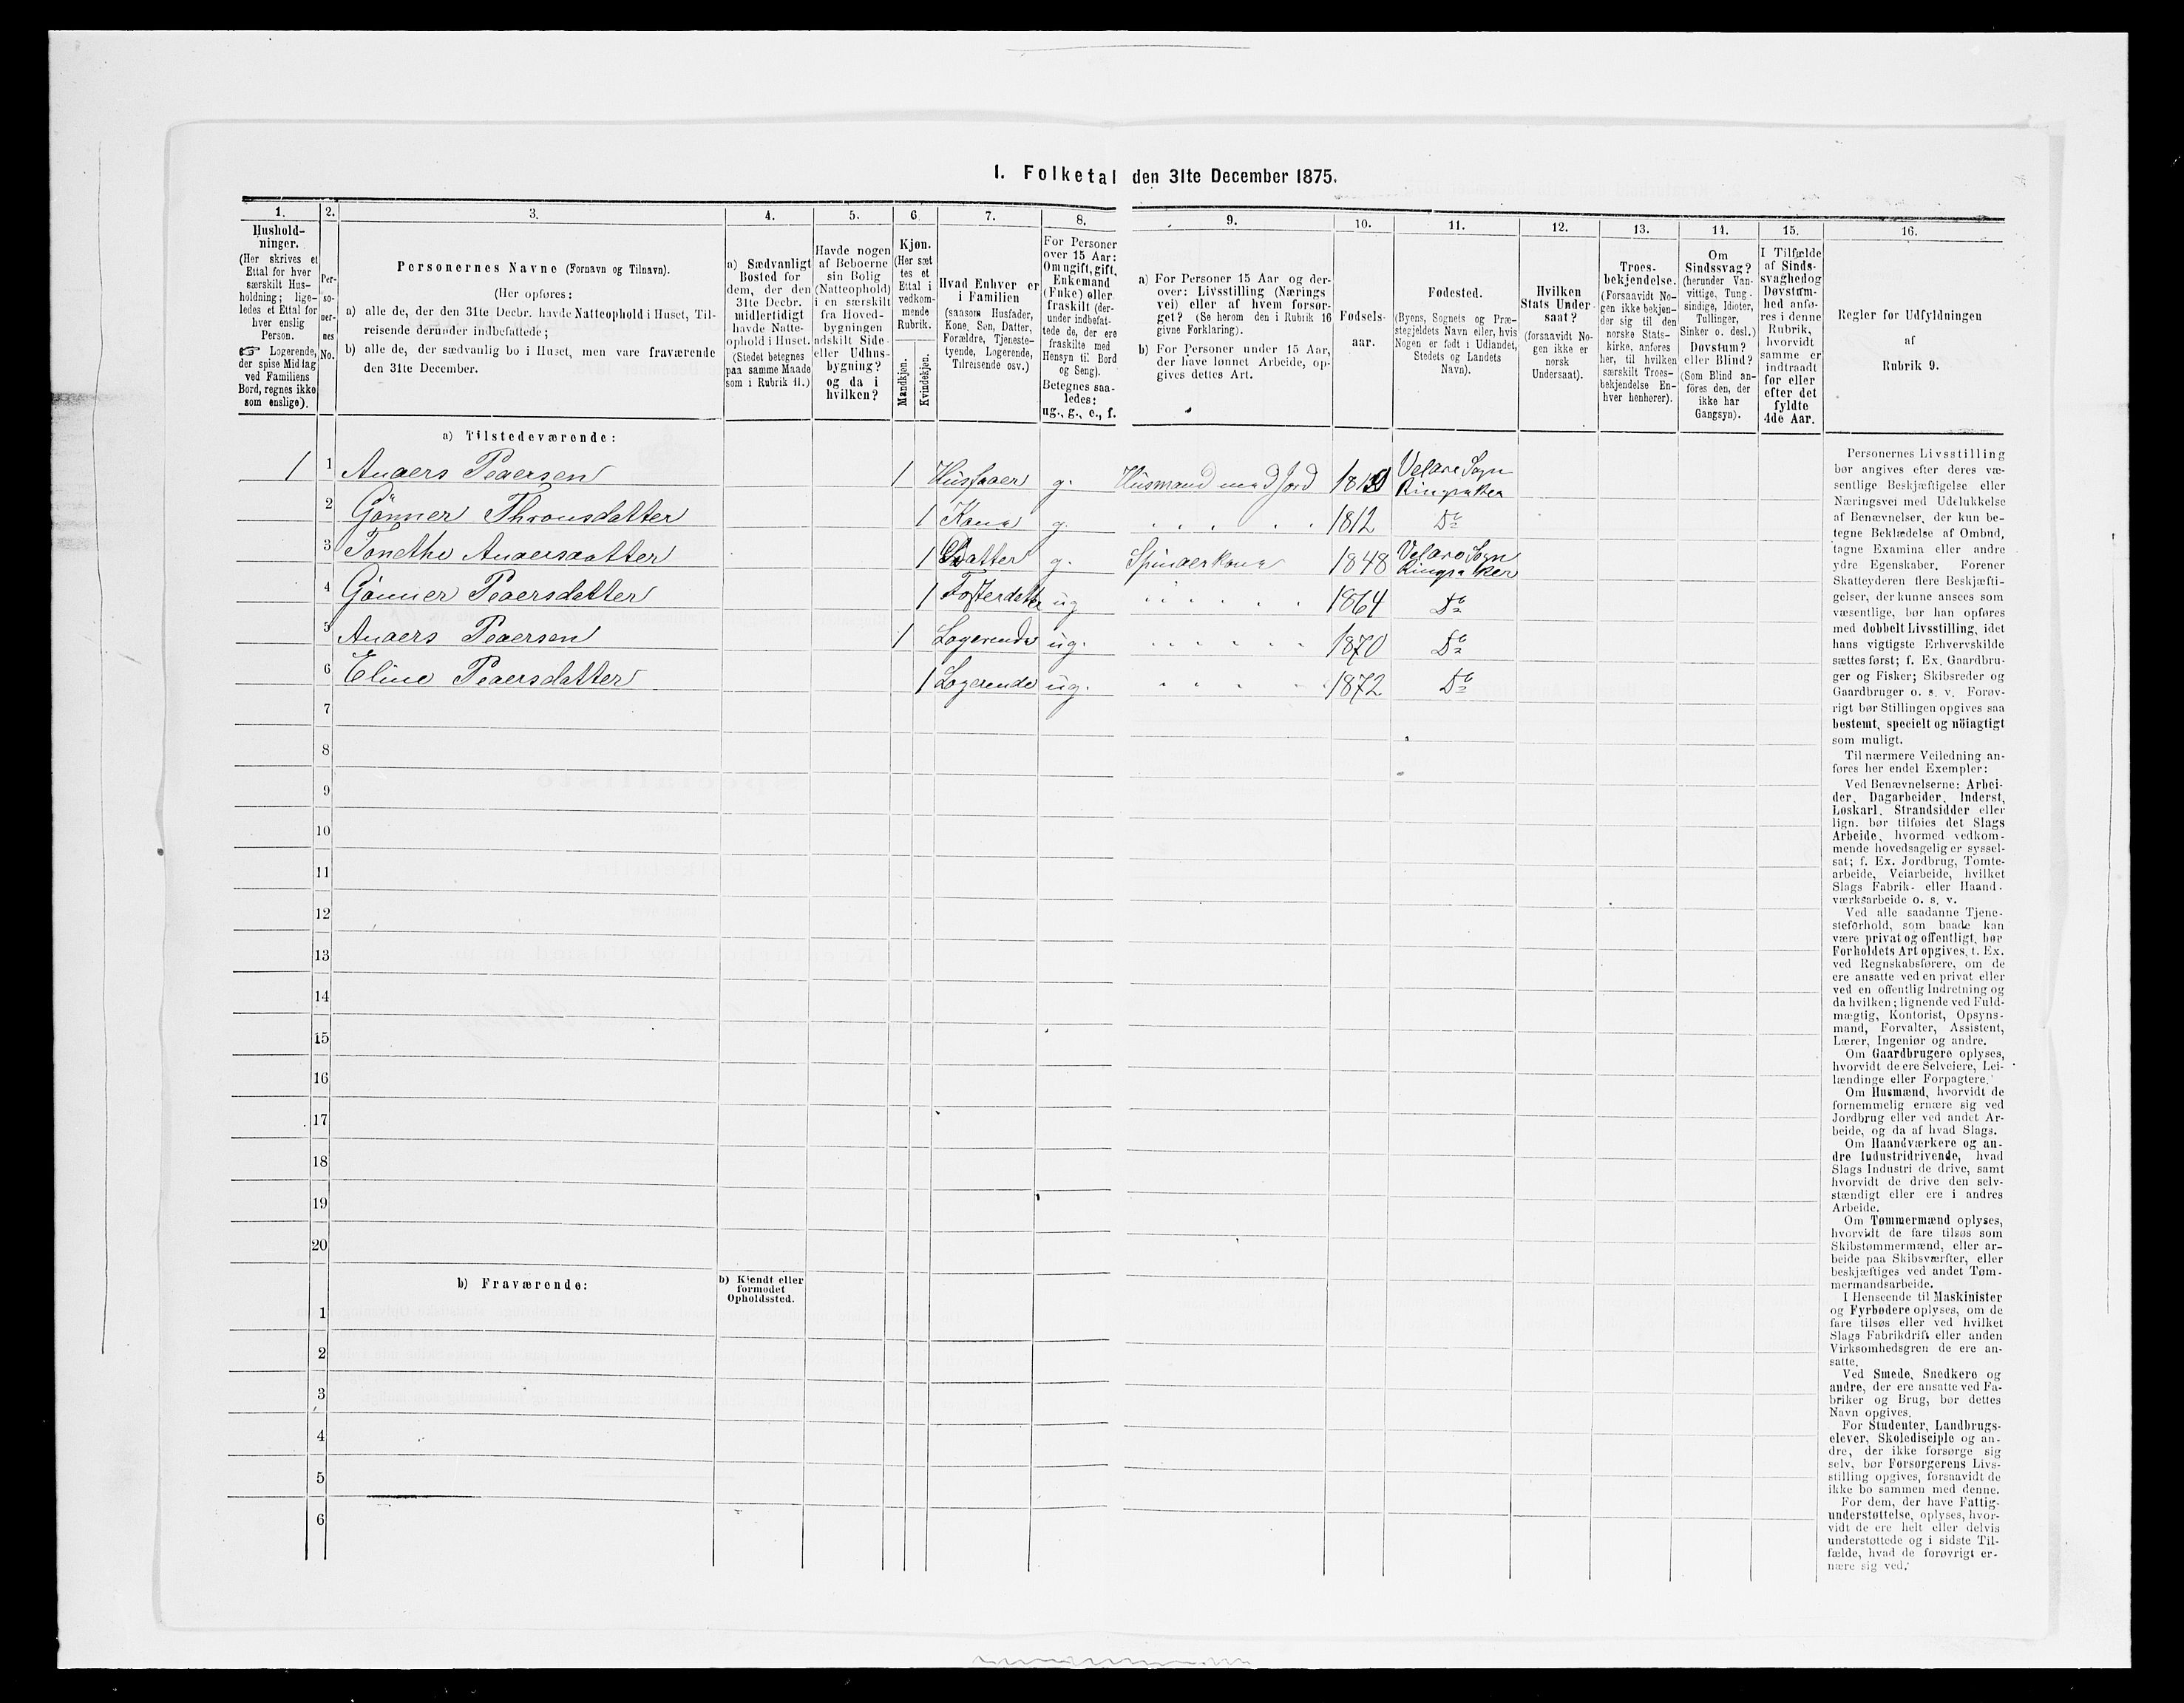 I. Folketal den 31te December 1875.
1. 2. 3. 4. 5. 6. 7. 8. 9. 10. 11. 12. 13. 14. 15. 16.
Hushold-
ninger.
(Her skrives et
Ettal for hver
særskilt Hus-
holdning; lige-
ledes et Ettal for
hver enslig
Person.
☞ Logerende,
der spise Middag
ved Familiens
Bord, regnes ikke
som enslige).
Per-
so-
ner-
nes
No.
Personernes Navne (Fornavn og Tilnavn).
(Her opføres:
a) alle de, der den 31te Decbr. havde Natteophold i Huset, Til-
reisende derunder indbefattede;
b) alle de, der sædvanlig bo i Huset, men vare fraværende
den 31te December.
a) Sædvanligt
Bosted for
dem, der den
31te Decbr.
midlertidigt
havde Natte-
ophold i Huset.
(Stedet betegnes
paa samme Maade
som i Rubrik 11.)
Havde nogen
af Beboerne
sin Bolig
(Natteophold)
i en særskilt
fra Hoved-
bygningen
adskilt Side-
eller Udhus-
bygning?
og da i
hvilken?
Kjøn.
(Her sæt-
tes et
Ettal i
vedkom-
mende
Rubrik.
Mandkjøn.
Kvindekjøn.
Hvad Enhver er
i Familien
(saasom Husfader,
Kone, Søn, Datter,
Forældre, Tjeneste-
tyende, Logerende,
Tilreisende osv.)
For Personer
over 15 Aar:
Om ugift, gift,
Enkemand
(Enke) eller
fraskilt (der-
under indbefat-
tede de, der ere
fraskilte med
Hensyn til Bord
og Seng).
Betegnes saa-
ledes:
ug., g., e., f.
a) For Personer 15 Aar og der-
over: Livsstilling (Nærings
vei) eller af hvem forsør-
get? (Se herom den i Rubrik 16
givne Forklaring).
b) For Personer under 15 Aar,
der have lønnet Arbeide, op-
gives dettes Art.
Fødsels-
aar.
Fødested.
(Byens, Sognets og Præ-
stegjeldets Navn eller, hvis
Nogen er født i Udlandet,
Stedets og Landets
Navn).
Hvilken
Stats Under-
saat?
(forsaavidt No-
gen ikke er
norsk
Undersaat).
Troes-
bekjendelse.
(Forsaavidt No-
gen ikke bekjen-
der sig til den
norske Stats-
kirke, anføres
her, til hvilken
særskilt Troes-
bekjendelse En-
hver henhører).
Om
Sindssvag?
(herunder Van-
vittige, Tung-
sindige, Idioter,
Tullinger,
Sinker o. desl.)
Døvstum?
eller Blind?
(Som Blind an-
føres den, der
ikke har
Gangsyn).
I Tilfælde
af Sinds-
svaghed og
Døvstum-
hed anfø-
res i denne
Rubrik,
hvorvidt
samme er
indtraadt
før eller
efter det
fyldte
4de Aar.
Regler for Udfyldningen
af
Rubrik 9.
a) Tilstedeværende:
1 1 Anders Pedersen 1 Husfader g. Husmand med Jord Veldre Sogn Ringsaker
2 Gönner Thronsdatter 1 Kone g. " " " " " 1812 Do
3 Tonethe Andersdatter 1 Datter g. Spinderkone 1848 Veldre Sogn Ringsaker
4 Gönner Pedersdatter 1 Fosterdatter ug " " " " " 1864 Do
5 Anders Pedersen 1 Logerende ug. " " " " " 1870 Do
6 Eline Pedersdatter 1 Logerende ug. " " " " 1872 Do
7
8
9
10
11
12
13
14
15
16
17
18
19
20
b) Fraværende:
b) Kjendt eller
formodet
Opholdssted.
1
2
3
4
5
6
Personernes Livsstilling
bør angives efter deres væ-
sentlige Beskjæftigelse eller
Næringsvei med Udelukkelse
af Benævnelser, der kun be-
tegne Beklædelse af Ombud,
tagne Examina eller andre
ydre Egenskaber. Forener
Skatteyderen flere Beskjæfti-
gelser, der kunne ansees som
væsentlige, bør han opføres
med dobbelt Livsstilling, idet
hans vigtigste Erhvervskilde
sættes først; f. Ex. Gaardbru-
ger og Fisker; Skibsreder og
Gaardbruger o. s. v. Forøv-
rigt bør Stillingen opgives saa
bestemt, specielt og nöiagtigt
som muligt.
Til nærmere Veiledning an-
føres her endel Exempler:
Ved Benævnelserne: Arbei-
der, Dagarbeider, Inderst,
Løskarl, Strandsidder eller
lign. bør tilføies det Slags
Arbeide, hvormed vedkom-
mende hovedsagelig er syssel-
sat; f. Ex. Jordbrug, Tomte-
arbeide, Veiarbeide, hvilket
Slags Fabrik- eller Haand-
værksarbeide o. s. v.
Ved alle saadanne Tjene-
steforhold, som baade kan
være privat og offentligt, bør
Forholdets Art opgives, t. Ex.
ved Regnskabsførere, om de
ere ansatte ved en privat eller
ved en offentlig Indretning og
da hvilken; lignende ved Fuld-
mægtig, Kontorist, Opsyns-
mand, Forvalter, Assistent,
Lærer, Ingeniør og andre.
Om Gaardbrugere oplyses,
hvorvidt de ere Selveiere, Lei-
lændinge eller Forpagtere.
Om Husmænd, hvorvidt de
fornemmelig ernære sig ved
Jordbrug eller ved andet Ar-
beide, og da af hvad Slags.
Om Haandværkere og an-
dre Industridrivende, hvad
Slags Industri de drive, samt
hvorvidt de drive den selv-
stændigt eller ere i andres
Arbeide.
Om Tømmermænd oplyses,
hvorvidt de fare tilsøs som
Skibstømmermænd, eller ar-
beide paa Skibsværfter, eller
beskjæftiges ved andet Tøm-
mermandsarbeide.
I Henseende til Maskinister
og Fyrbødere oplyses, om de
fare tilsøs eller ved hvilket
Slags Fabrikdrift eller anden
Virksomhedsgren de ere an-
satte.
Ved Smede, Snedkere og
andre, der ere ansatte ved Fa-
briker og Brug, bør dettes
Navn opgives.
For Studenter, Landbrugs-
elever, Skoledisciple og an-
dre, der ikke forsørge sig
selv, bør Forsørgerens Livs-
stilling opgives, forsaavidt de
ikke bo sammen med denne.
For dem, der have Fattig-
understøttelse, oplyses, hvor-
vidt de ere helt eller delvis
understøttede og i sidste Til-
fælde, hvad de forøvrigt er-
nære sig ved.